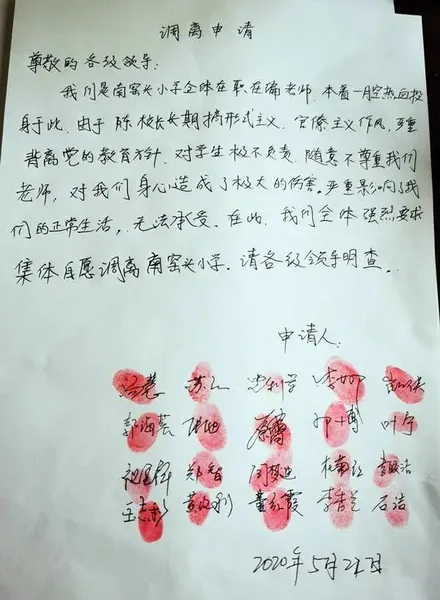 调离申请
尊敬的各级领导:
我们是南窑头小学全体在职在编老师,本着一腔热血投
身于此,由于陈校长长期搞形式主义、官僚主义作风,严重
背离党的教育方针,对学生极不负责,随意不尊重我们
老师,对我们身心造成了极大的伤害,严重影响了我
们的正常生活,无法承受。在此,我们全体强烈要求
集体自愿调离南窑头小学。请各级领导明查。
申请人:
郭海芸 叶宁
董红霞 石洁
2020年5月21日